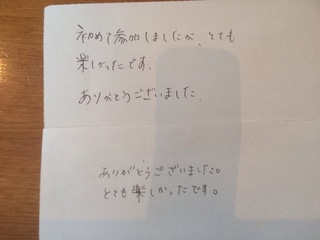 初めて参加しましたが、とても
楽しかったです.
ありがとうございました.
ありがとうございました。
とても楽しかったです。